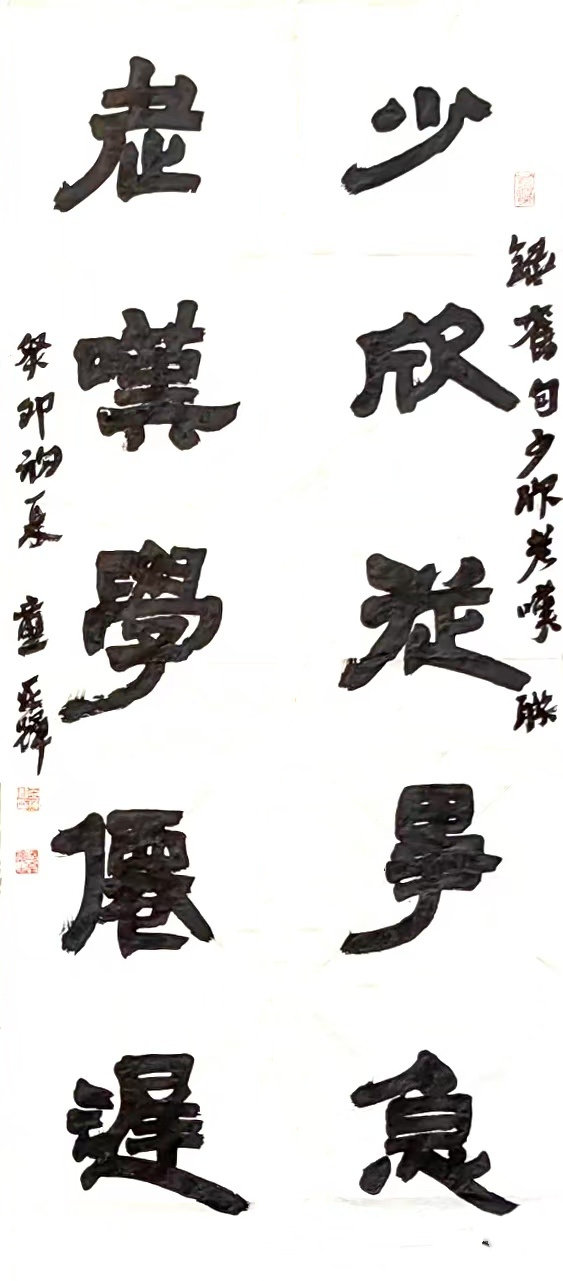 錄舊句少欣老嘆 聯
少欣從事急
老嘆學僊遲
癸卯初夏 童